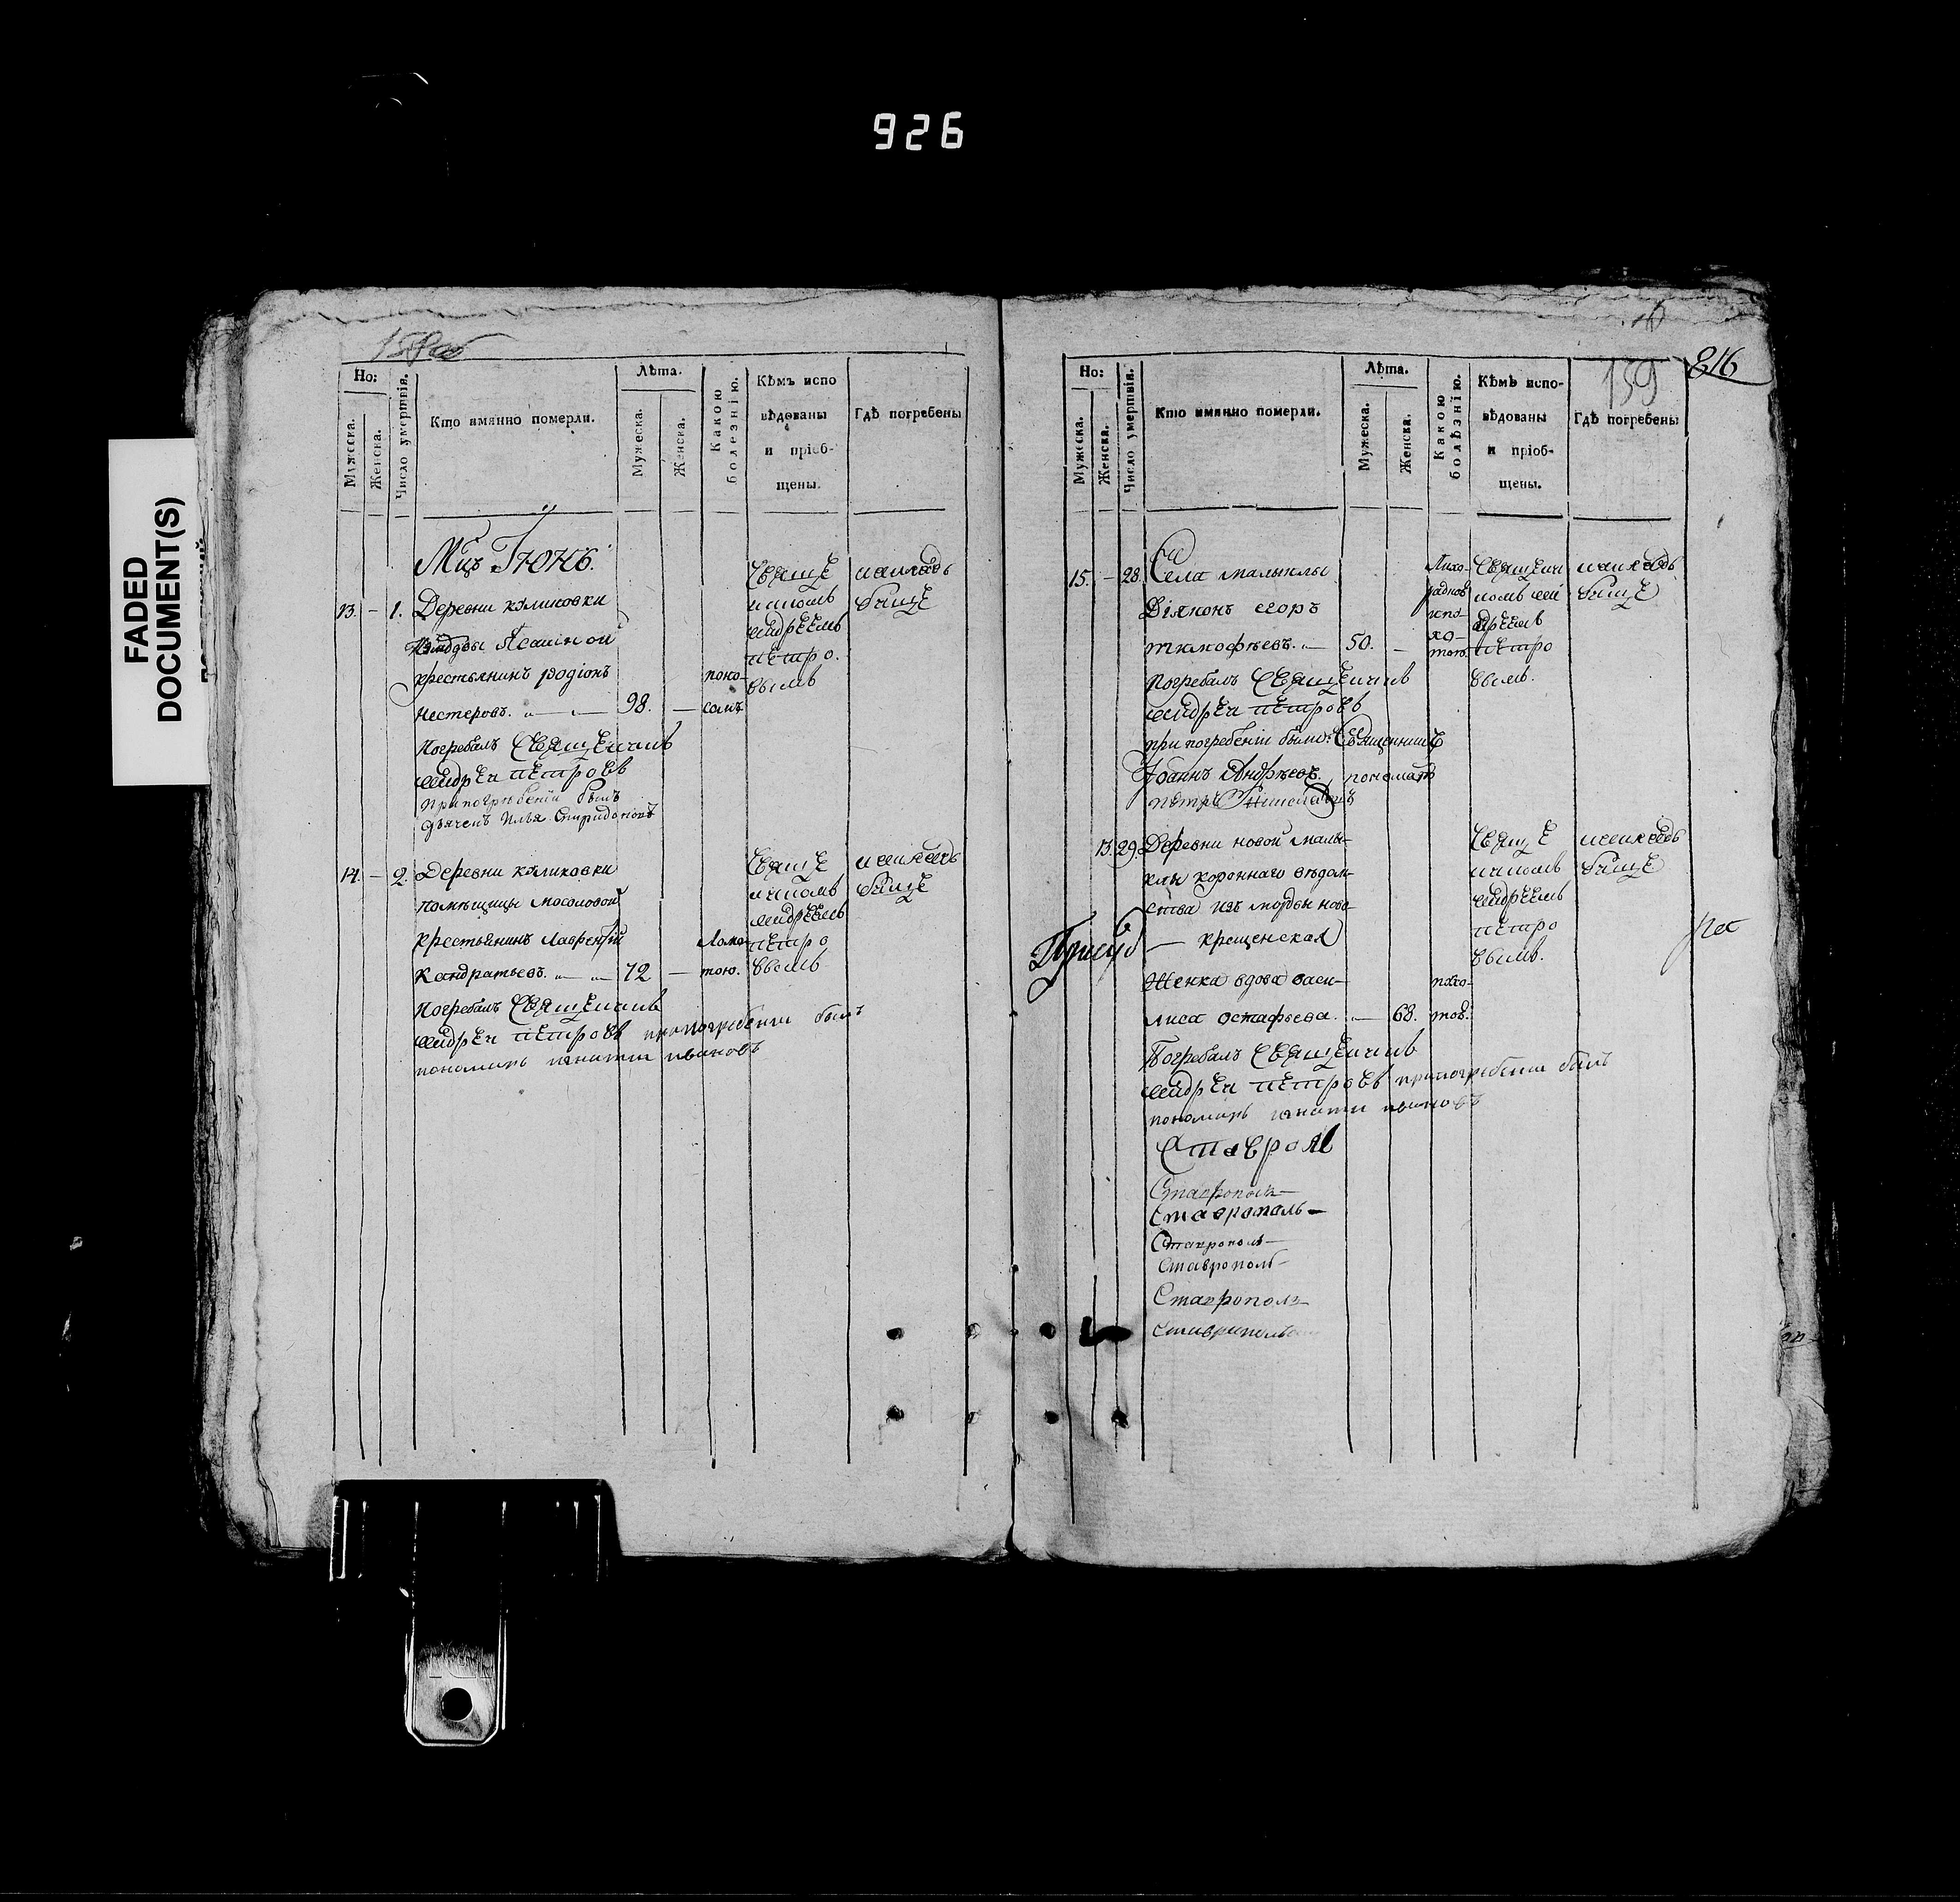 926
FADED
DOCUMENT(S)
Но:
Мужеска.
Женска.
Число умертвія.
Кто имянно померли.
Лѣта.
Мужеска.
Женска.
Какою
болезнію.
Кѣмъ испо
вѣдованы
и пріоб-
щены.
Гдѣ погребены
Мцъ Іюнь.
13. – 1. Деревни куликовки
крестьянинъ родіонъ
нестеровъ. 98. –
погребалъ Священникъ
андрей петровъ
при погребеніи былъ
дьячекъ Илья Спиридоновъ
Свяще
нникомъ
андреемъ
петро
вымъ
на клад
бище
14. – 2. Деревни куликовки
помѣщицы мосоловой
крестьянинъ лаврентій
кандратьевъ. 72 –
погребалъ Священникъ
андрей петровъ при погребении былъ
пономарь игнатий ивановъ
Свяще
нникомъ
андреемъ
петро
вымъ
на клад
бище
816
159
Но:
Мужеска.
Женска.
Число умертвія.
Кто имянно померли.
Лѣта.
Мужеска.
Женска.
Какою
болѣзнію.
Кѣмъ испо-
вѣдованы
и пріоб-
щены.
Гдѣ погребены
15. – 28. Села малыклы
Діяконъ егоръ
тимофѣевъ. 50. –
Погребалъ Священникъ
андрей петровъ
при погребеніи были: Священникъ
Іоаннъ Андрѣевъ. пономарь
петръ
Священ
андреемъ
петро
вымъ.
на клад
бище
13. 29. Деревни новой малы-
клы короннаго вѣдом-
ства изъ мордвы ново
– крещенская
Женка вдова васи-
лиса остафьева. – 68.
Погребалъ Священникъ
андрей петровъ при погребении былъ
пономарь игнатии ивановъ
Свяще
нникомъ
андреемъ
петро
вымъ.
на клад
бище
Ставропол
Ставрополь
Ставрополь
Ставрополь
Ставрополь
Ставрополь